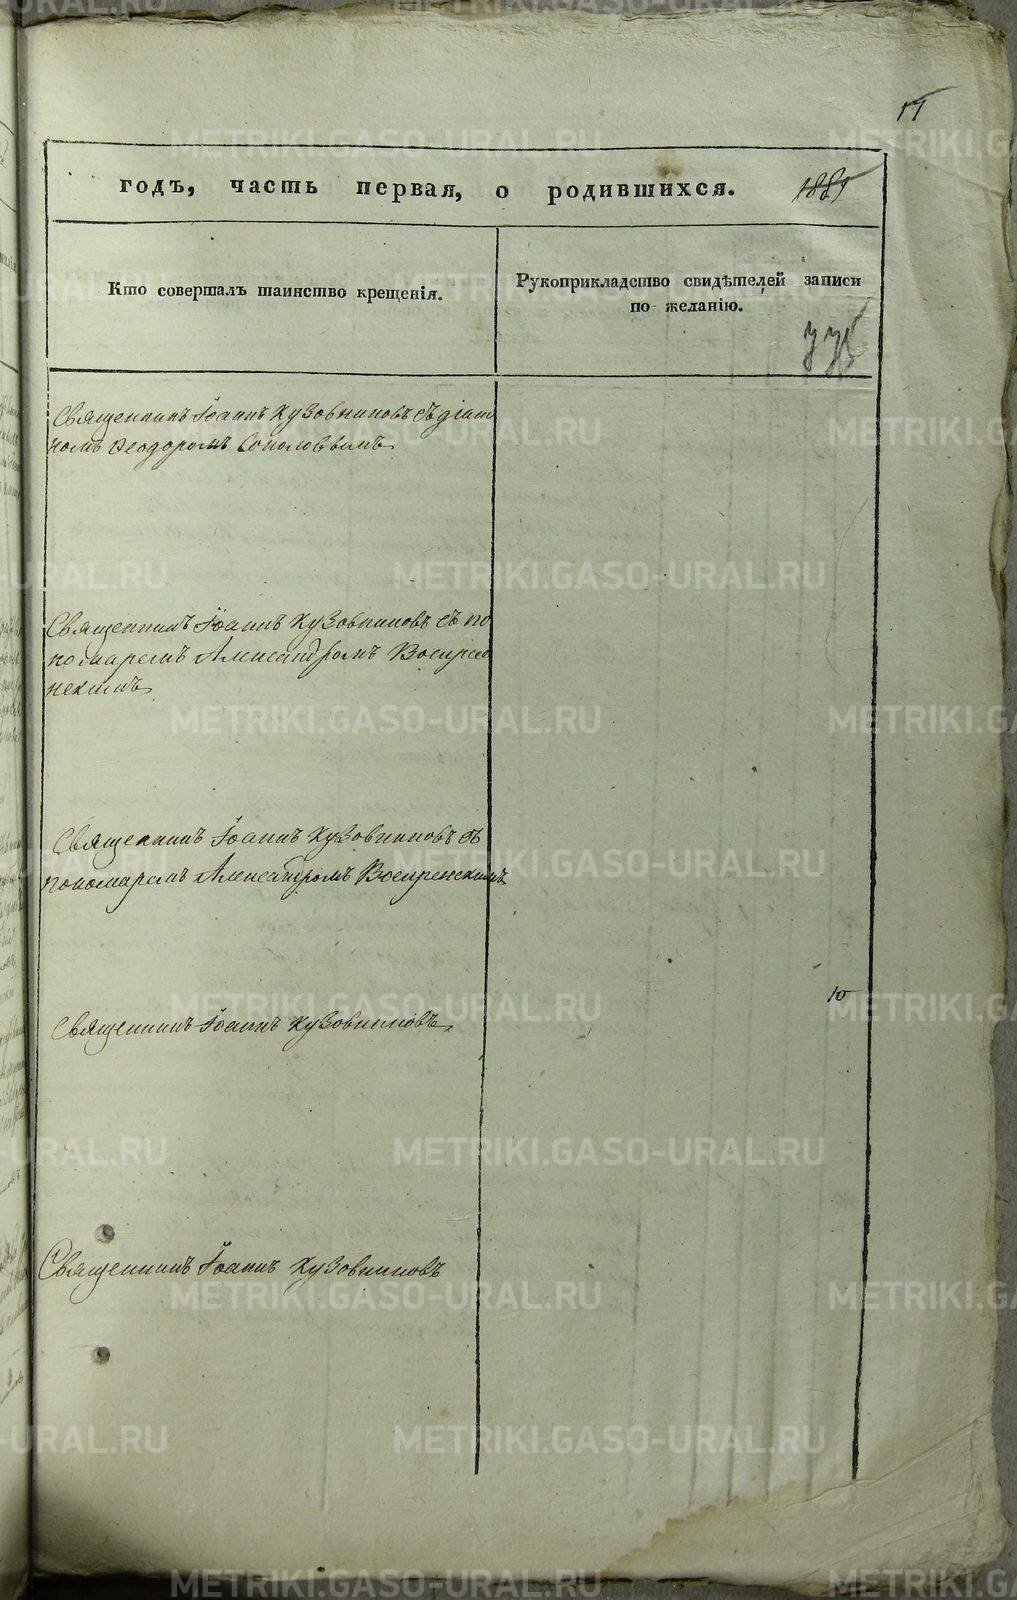 17
годъ, часть первая, о родившихся. 1881
Кто совершалъ таинство крещенія.
Рукоприкладство свидѣтелей записи
по желанію.
Священникъ Іоаннъ Кузовниковъ съ діач
комъ Ѳеодоромъ Соколовымъ
Священникъ Іоаннъ Кузовниковъ съ по
номаремъ Александромъ Воскресе
нскимъ
Священникъ Іоаннъ Кузовниковъ съ
пономаремъ Александромъ Воскресенскимъ
10
Священникъ Іоаннъ Кузовниковъ
Священникъ Іоаннъ Кузовниковъ
METRIKI.GASO-URAL.RU